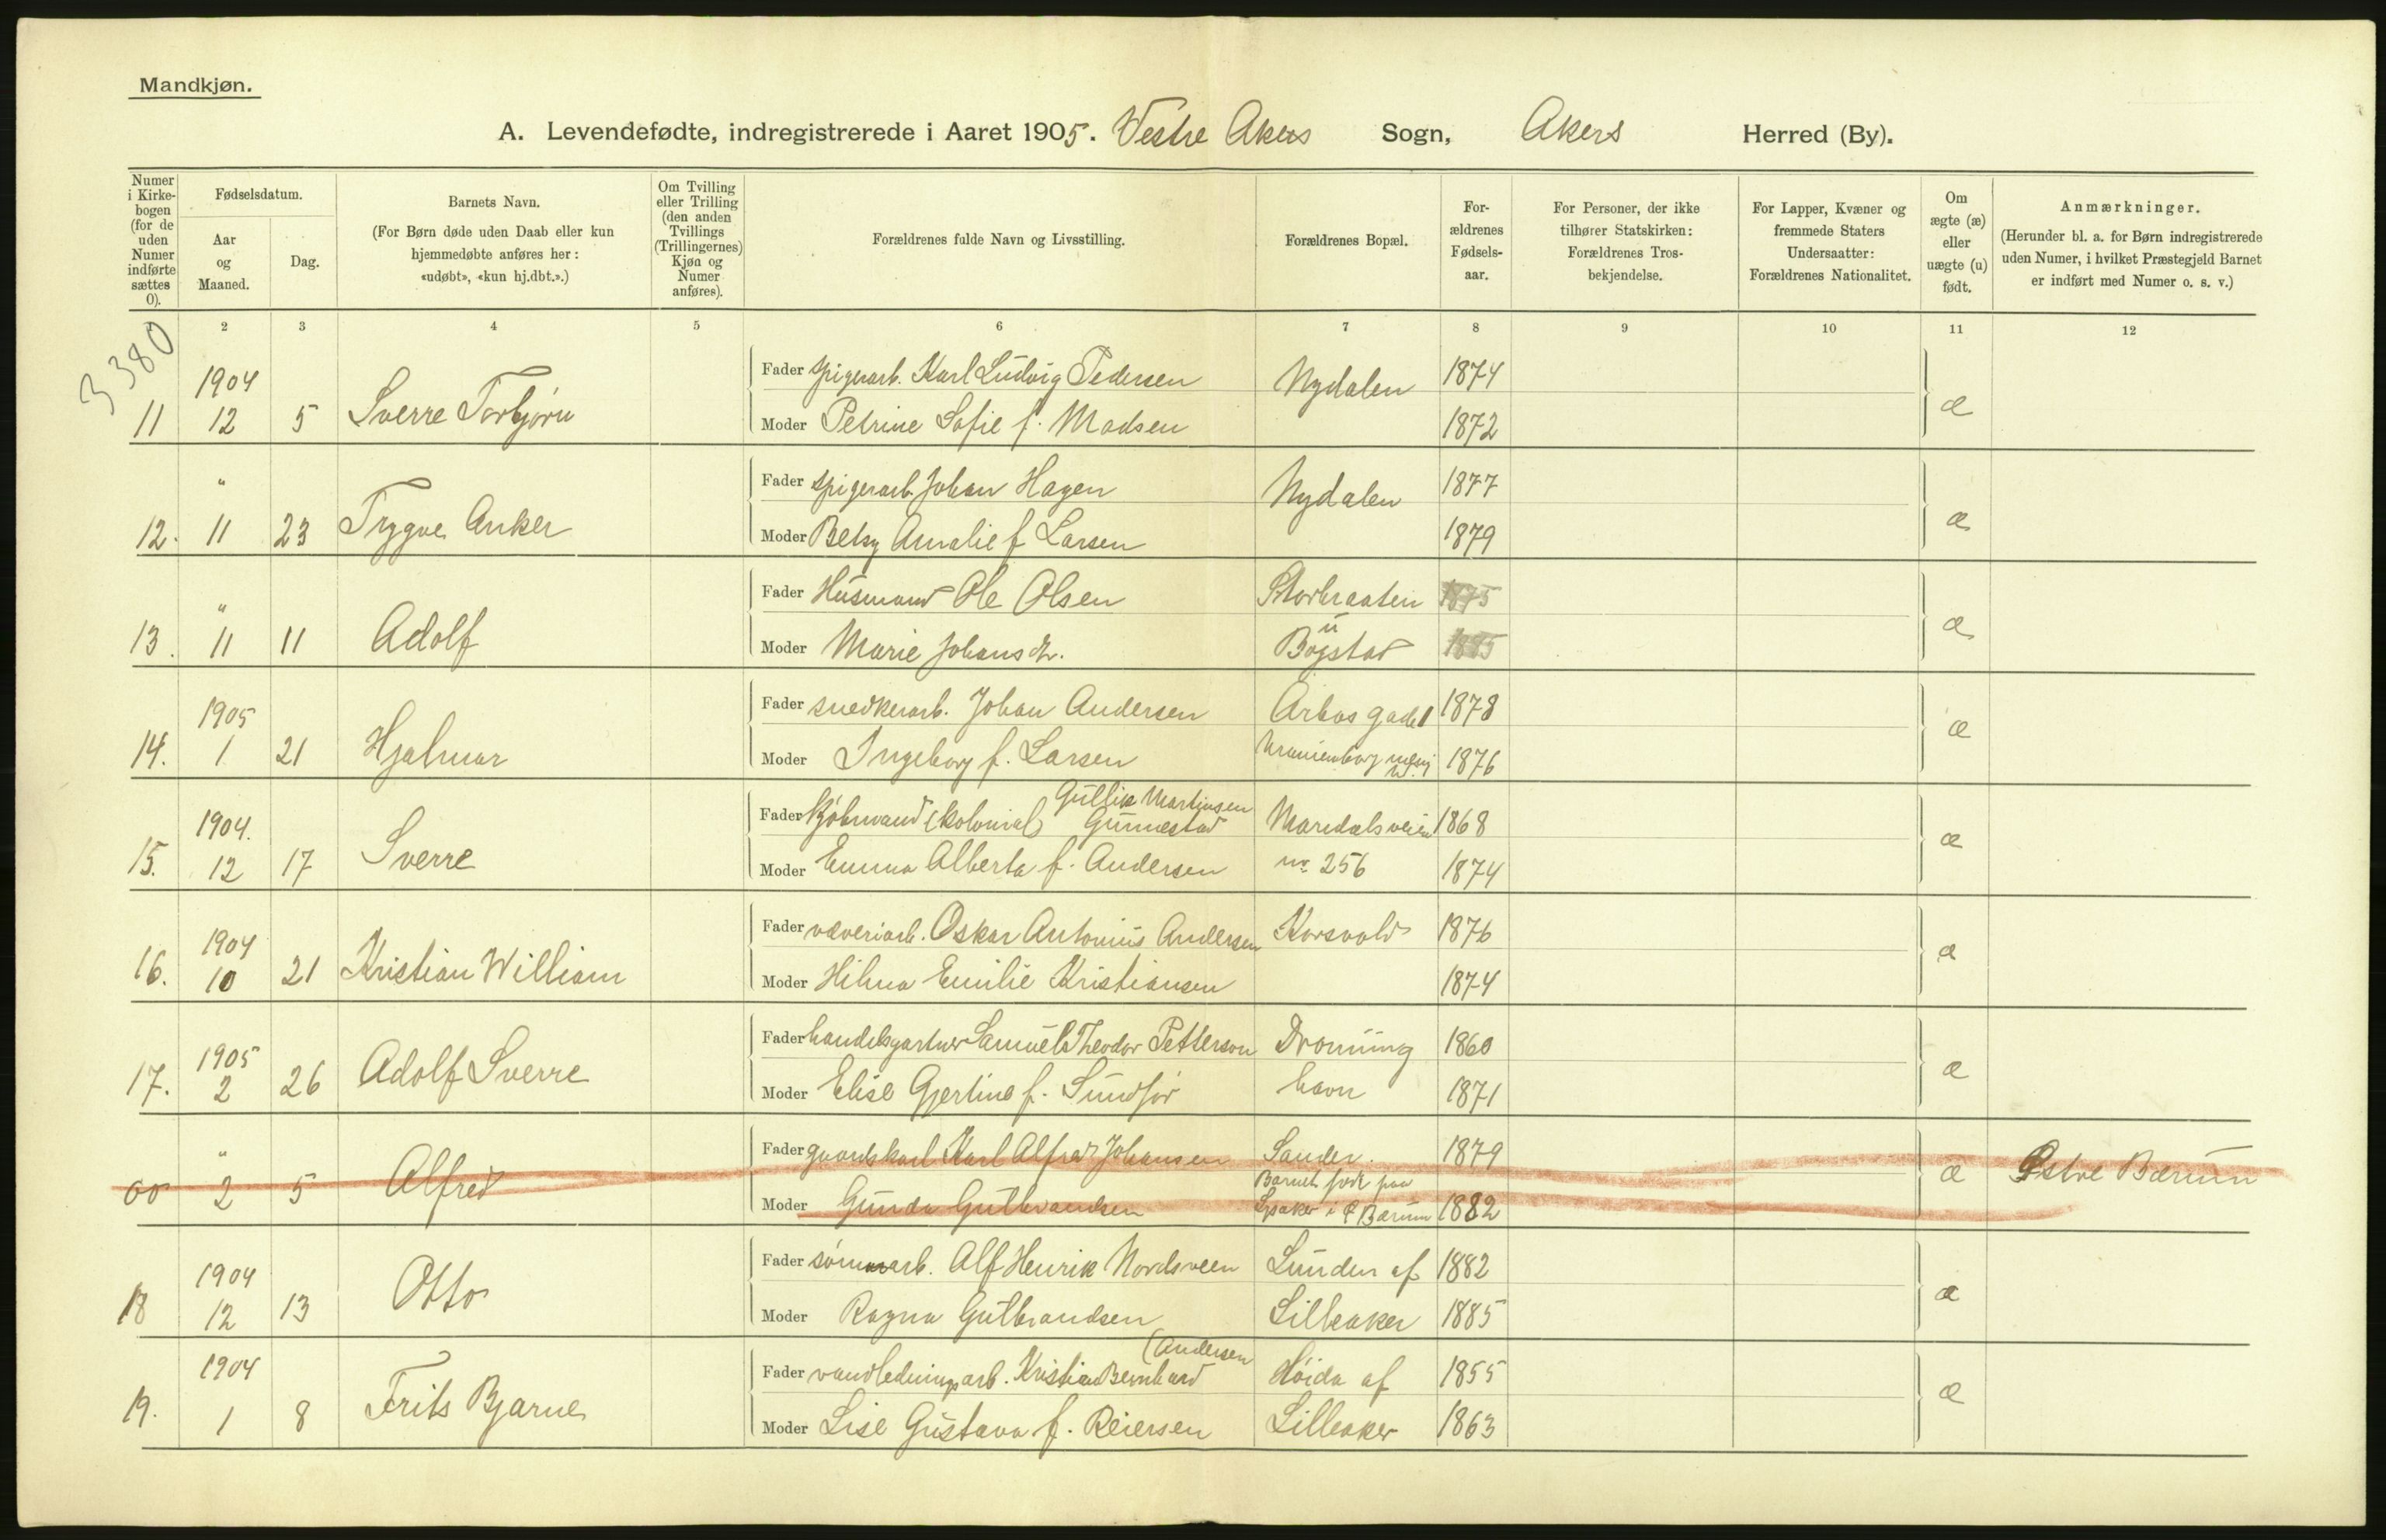 Mandkjøn.
A. Levendefødte, indregistrerede i Aaret 1905. Vestre Akers Sogn, Akers Herred (By).
Numer i Kirkebogen (for de uden Numer indførte sættes 0).
Fødselsdatum.
Aar og Maaned.
Dag.
Barnets Navn.
(For Børn døde uden Daab eller kun hjemmedøbte anføres her: «udøbt», «kun hj.dbt.».)
Om Tvilling eller Trilling (den anden Tvillings (Trillingernes) Kjøn og Numer anføres).
Forældrenes fulde Navn og Livsstilling.
Forældrenes Bopæl.
Forældrenes Fødselsaar.
For Personer, der ikke tilhører Statskirken: Forældrenes Trosbekjendelse.
For Lapper, Kvæner og fremmede Staters Undersaatter: Forældrenes Nationalitet.
Om ægte (æ) eller uægte (u) født.
Anmærkninger.
(Herunder bl. a. for Børn indregistrerede uden Numer, i hvilket Præstegjeld Barnet er indført med Numer o. s. v.)
2 3 4 5 6 7 8 9 10 11 12
3380
11 1904 12 5 Sverre Torbjørn Fader spigerarb. Karl Ludvig Pedersen Nydalen 1874 æ
Moder Petrine Sofie f. Madsen 1872
12. " 11 23 Trygve Anker Fader spigerarb. Johan Hagen Nydalen 1877 æ
Moder Betsy Amalie f Larsen 1879
13. " 11 11 Adolf Fader Husmand Ole Olsen 1875 æ
Moder Marie Johansd. Bogstad 1885
14. 1905 1 21 Hjalmar Fader snedkerarb. Johan Andersen Arbos gade 1 1878 æ
Moder Ingeborg f. Larsen Uranienborg 1876
15. 1904. 12 17 Sverre Fader Kjøbmand (kolonial) Gullik Martinsen Gunnestad Maridalsveien 1868 æ
Moder Emma Alberta f. Andersen nr 256 1874
16. 1904 10 21 Kristian William Fader væveriarb. Oskar Antonius Andersen Korsvold 1876 æ
Moder Hilma Emilie Kristiansen 1874
17. 1905 2 26 Adolf Sverre Fader handelsgartner Samuel Theodor Petterson Dronning 1860 æ
Moder Elise Gjertine f. Sundför havn 1871
00 " 2 5 Alfred Fader gaardskarl Karl Alfred Johansen Sander. 1879 æ Østre Bærum
Barnet født paa
Moder Gunda Gulbrandsen Lysaker i Ø Bærum 1882
18 1904 12 13 Otto Fader sömarb. Alf Henrik Nordsveen Lunden af 1882 æ
Moder Ragna Gulbrandsen Lilleaker 1885
19. 1904 1 8 Frits Bjarne Fader vandledningsarb. Kristian Bernhard (Andersen Höida af 1855 æ
Moder Lise Gustava f. Reiersen Lilleaker 1863